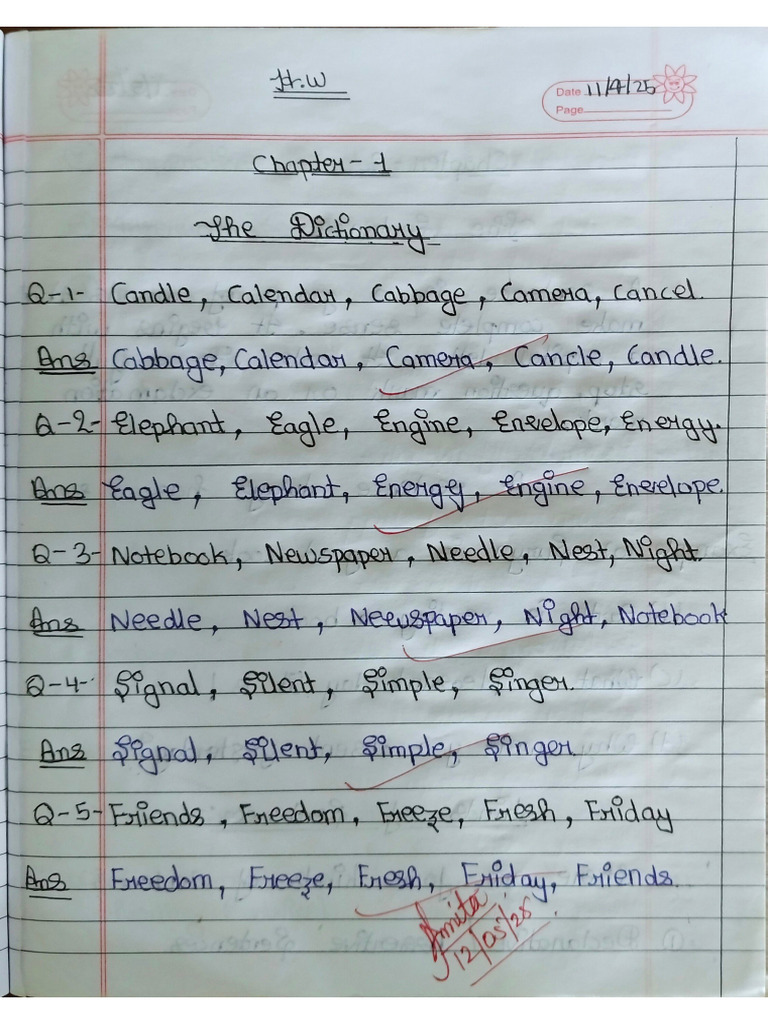 H.W
Date 11/4/25
Page
Chapter - 1
The Dictionary
Q-1- Candle, Calendar, Cabbage, Camera, Cancel.
Ans Cabbage, Calendar, Camera, Cancle, Candle.
Q-2- Elephant, Eagle, Engine, Envelope, Energy.
Ans Eagle, Elephant, Energy, Engine, Envelope.
Q-3- Notebook, Newspaper, Needle, Nest, Night.
Ans Needle, Nest, Newspaper, Night, Notebook
Q-4- Signal, Silent, Simple, Singer.
Ans Signal, Silent, Simple, Singer.
Q-5- Friends, Freedom, Freeze, Fresh, Friday
Ans Freedom, Freeze, Fresh, Friday, Friends.
Amita
12/05/25